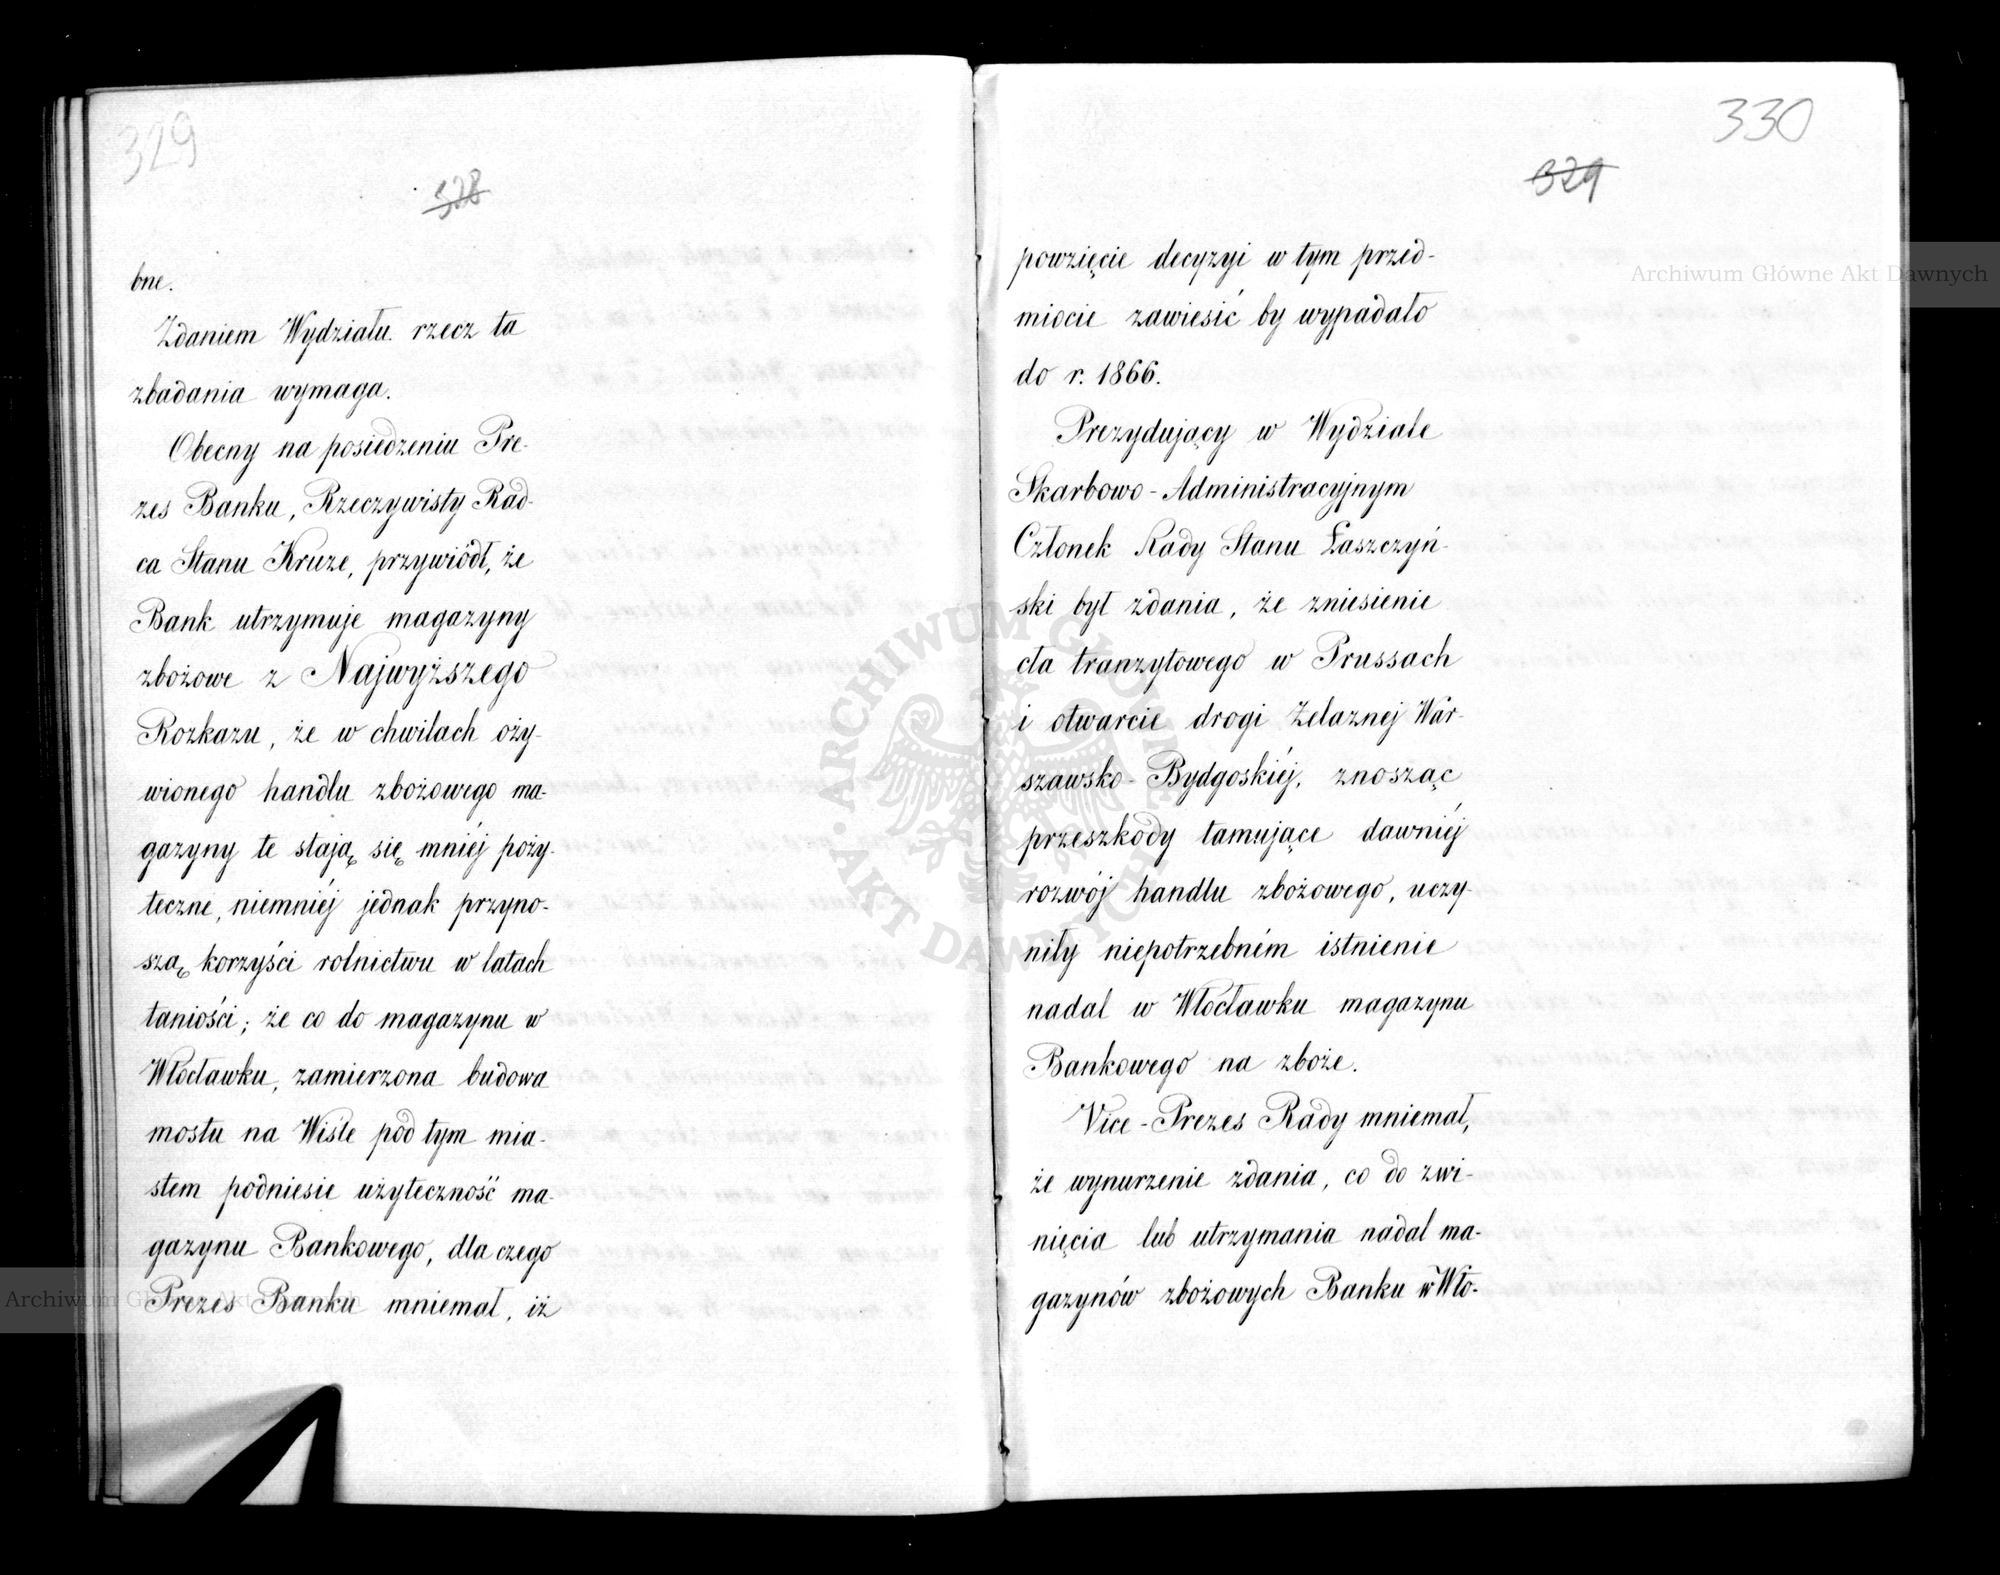 329
328
bne.
Zdaniem Wydziału rzecz ta
zbadania wymaga.
Obecny na posiedzeniu Pre-
zes Banku, Rzeczywisty Rad-
ca Stanu Kruze, przywiódł, że
Bank utrzymuje magazyny
zbożowe z Najwyższego
Rozkazu, że w chwilach oży-
wionego handlu zbożowego ma-
gazyny te stają się mniéj poży-
teczne, niemniéj jednak przyno-
szą korzyści rolnictwu w latach
taniości; że co do magazynu w
Włocławku, zamierzona budowa
mostu na Wiśle pod tym mia-
stem podniesie użyteczność ma-
gazynu Bankowego, dla czego
Prezes Banku mniemał, iż
330
329
powzięcie decyzyi w tym przed-
miocie zawiesić by wypadało
do r. 1866.
Prezydujący w Wydziale
Skarbowo-Administracyjnym
Członek Rady Stanu Łaszczyń-
ski był zdania, że zniesienie
cła tranzytowego w Prussach
i otwarcie drogi Żelaznej War-
szawsko-Bydgoskiéj, znosząc
przeszkody tamujące dawniéj
rozwój handlu zbożowego, uczy-
niły niepotrzebném istnienie
nadal w Włocławku magazynu
Bankowego na zboże.
Vice-Prezes Rady mniemał,
że wynurzenie zdania, co do zwi-
nięcia lub utrzymania nadal ma-
gazynów zbożowych Banku w Wło-
Archiwum Główne Akt Dawnych
Archiwum Główne Akt Dawnych
ARCHIWUM GŁÓWNE AKT DAWNYCH